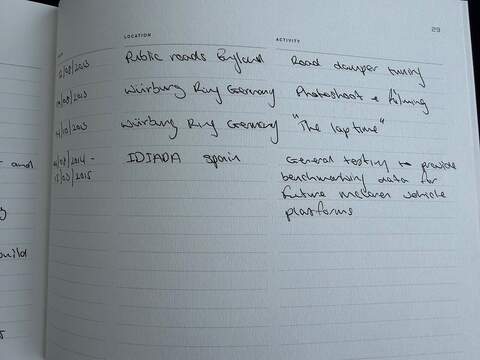 LOCATION ACTIVITY 29
Public roads England Road damper tuning
Würburg Ring Germany Photoshoot + filming
Würburg Ring Germany "The lap time"
/08/2014 - IDIADA spain General testing to provide
2015 benchmarking data for
future mclaren vehicle
platforms
and
build